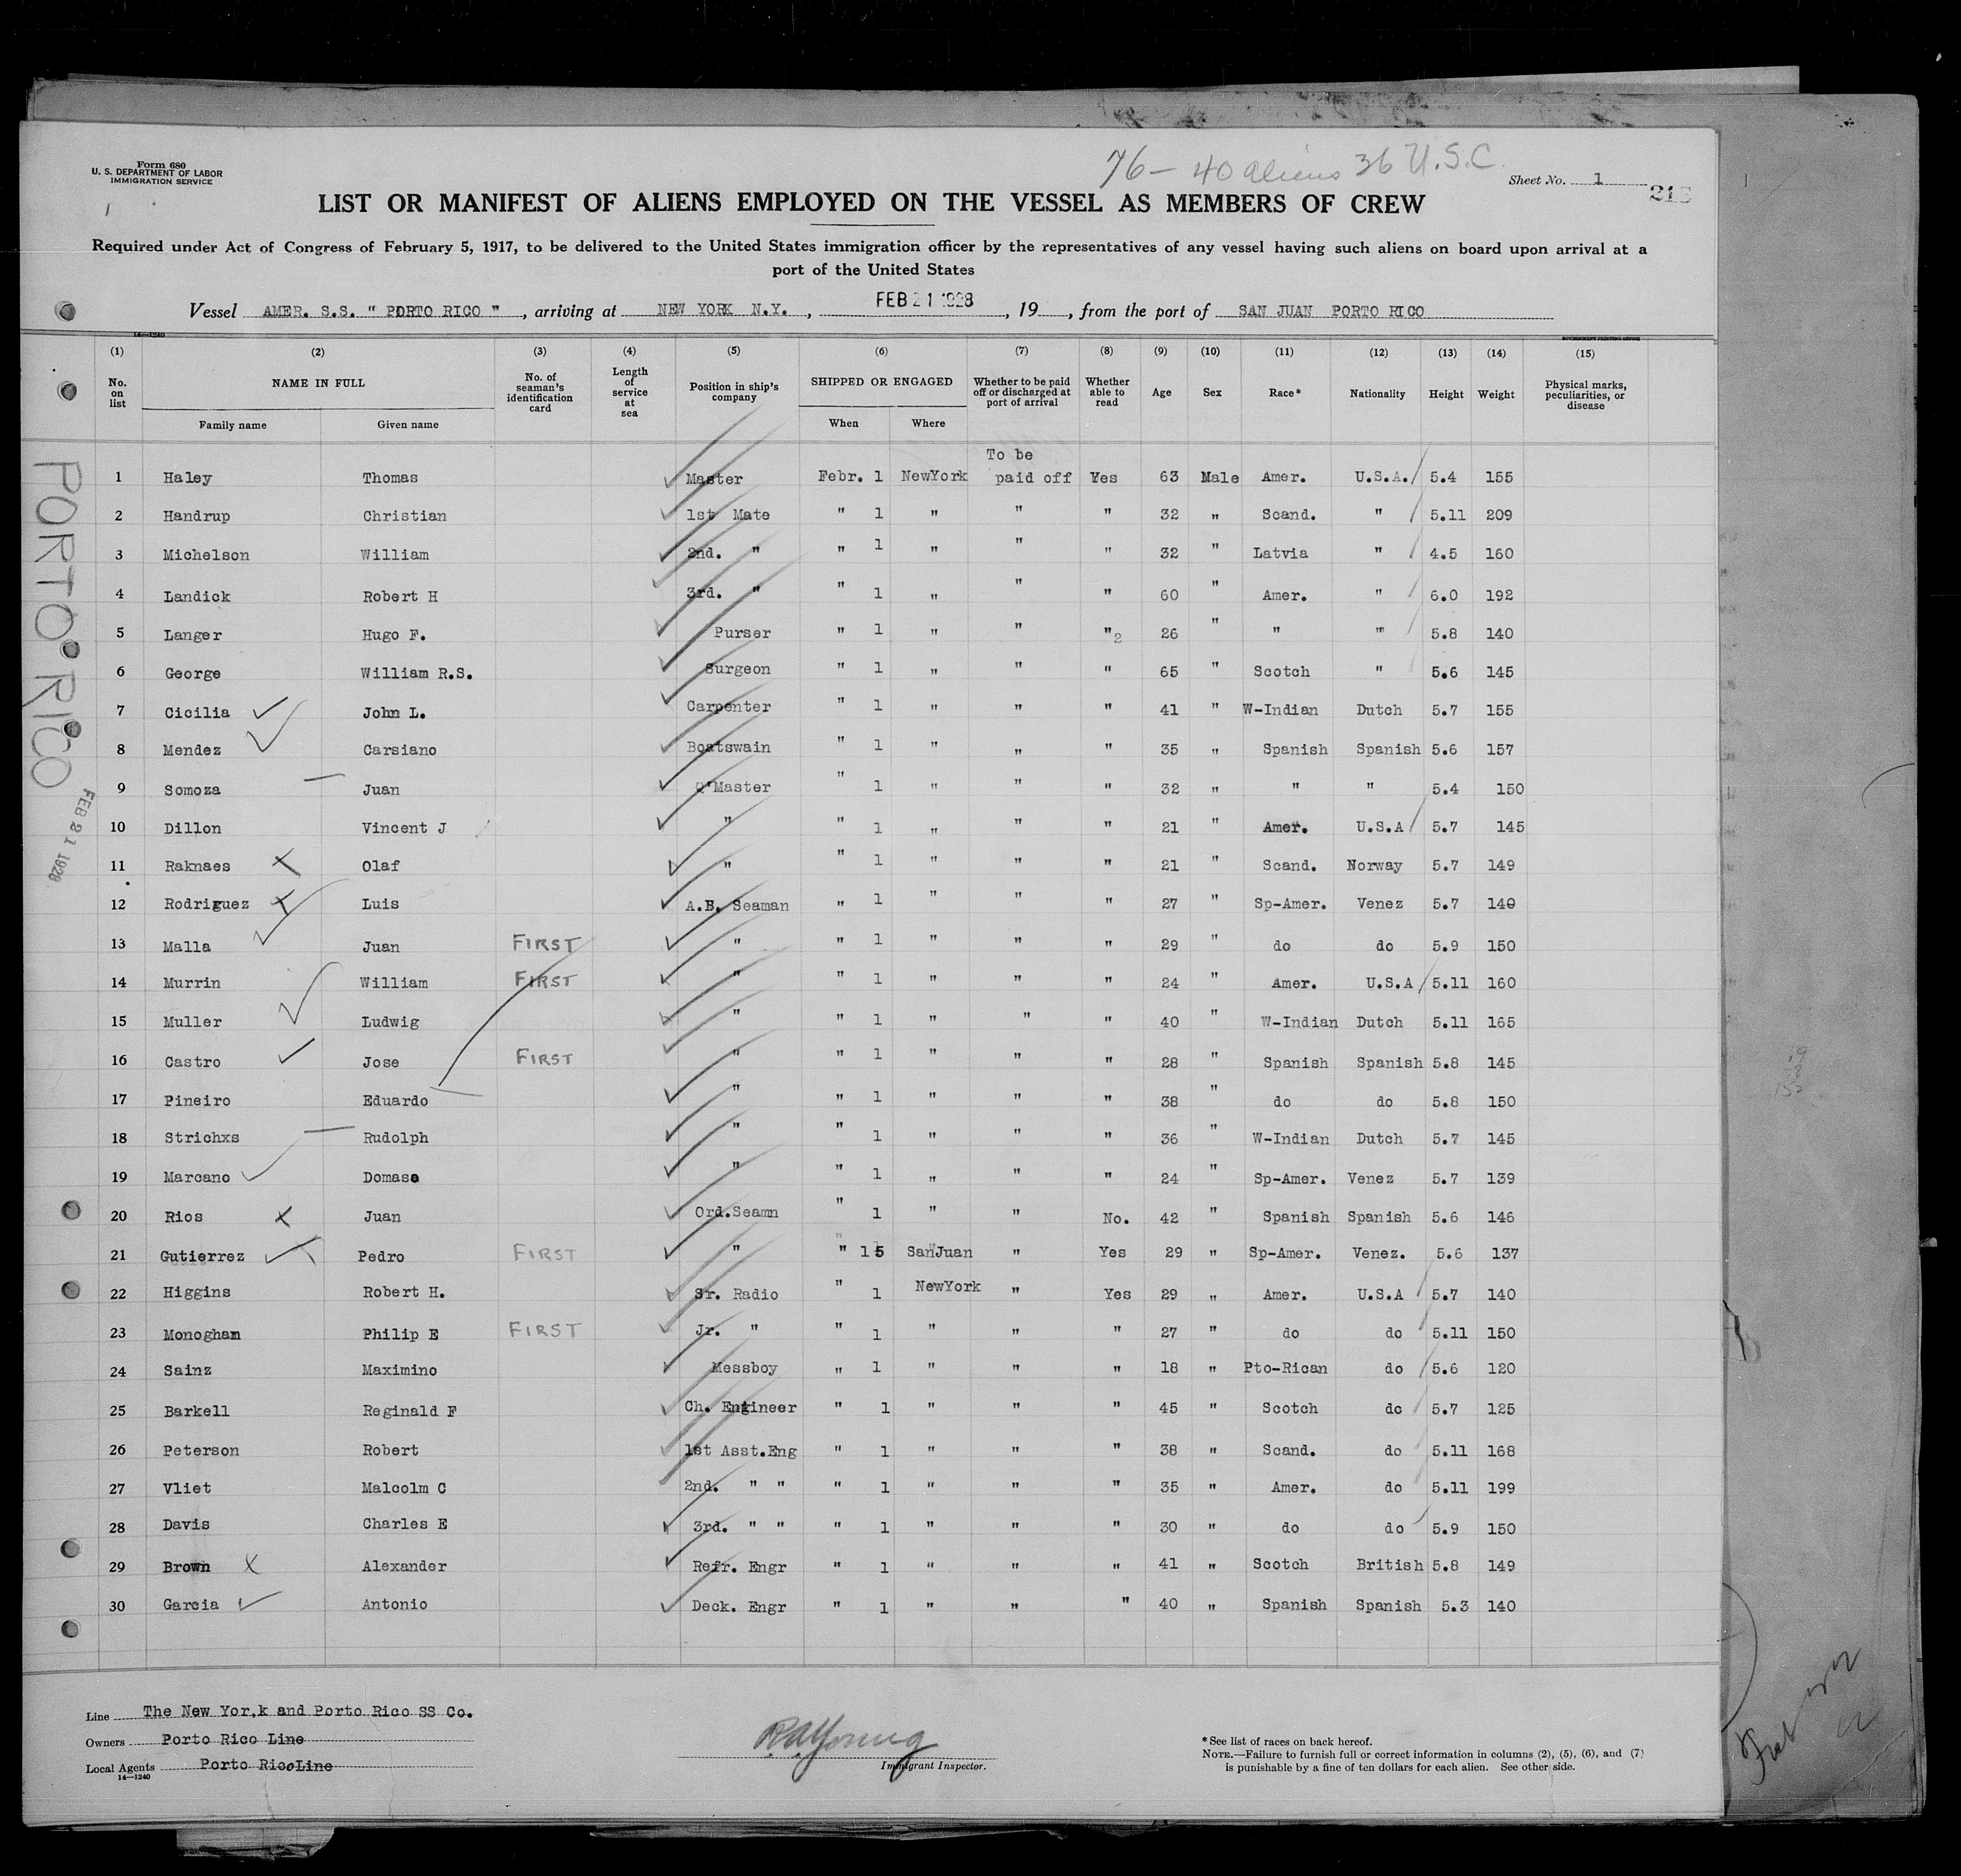 Form 680
U. S. DEPARTMENT OF LABOR
IMMIGRATION SERVICE
76 - 40 aliens 36 U.S.C.
Sheet No. 1
LIST OR MANIFEST OF ALIENS EMPLOYED ON THE VESSEL AS MEMBERS OF CREW
Required under Act of Congress of February 5, 1917, to be delivered to the United States immigration officer by the representatives of any vessel having such aliens on board upon arrival at a
port of the United States
Vessel AMER. S.S. " PORTO RICO " , arriving at NEW YORK N.Y. , FEB 21 1928 , 19 , from the port of SAN JUAN PORTO RICO
14—1240
GOVERNMENT PRINTING OFFICE
(1) (2) (3) (4) (5) (6) (7) (8) (9) (10) (11) (12) (13) (14) (15)
No. on list NAME IN FULL No. of seaman's identification card Length of service at sea Position in ship's company SHIPPED OR ENGAGED Whether to be paid off or discharged at port of arrival Whether able to read Age Sex Race* Nationality Height Weight Physical marks, peculiarities, or disease
Family name Given name When Where
To be
1 Haley Thomas Master Febr. 1 NewYork paid off Yes 63 Male Amer. U.S.A. 5.4 155
2 Handrup Christian 1st Mate " 1 " " " 32 " Scand. " 5.11 209
3 Michelson William 2nd. " " 1 " " " 32 " Latvia " 4.5 160
4 Landick Robert H 3rd. " " 1 " " " 60 " Amer. " 6.0 192
5 Langer Hugo F. Purser " 1 " " "2 26 " " " 5.8 140
6 George William R.S. Surgeon " 1 " " " 65 " Scotch " 5.6 145
7 Cicilia John L. Carpenter " 1 " " " 41 " W-Indian Dutch 5.7 155
8 Mendez Carsiano Boatswain " 1 " " " 35 " Spanish Spanish 5.6 157
9 Somoza Juan Q'Master " 1 " " " 32 " " " 5.4 150
10 Dillon Vincent J " " 1 " " " 21 " Amer. U.S.A 5.7 145
11 Raknaes Olaf " " 1 " " " 21 " Scand. Norway 5.7 149
12 Rodriguez Luis A.B. Seaman " 1 " " " 27 " Sp-Amer. Venez 5.7 140
13 Malla Juan FIRST " " 1 " " " 29 " do do 5.9 150
14 Murrin William FIRST " " 1 " " " 24 " Amer. U.S.A 5.11 160
15 Muller Ludwig " " 1 " " " 40 " W-Indian Dutch 5.11 165
16 Castro Jose FIRST " " 1 " " " 28 " Spanish Spanish 5.8 145
17 Pineiro Eduardo " " 1 " " " 38 " do do 5.8 150
18 Strichxs Rudolph " " 1 " " " 36 " W-Indian Dutch 5.7 145
19 Marcano Domaso " " 1 " " " 24 " Sp-Amer. Venez 5.7 139
20 Rios Juan Ord.Seamn " 1 " " No. 42 " Spanish Spanish 5.6 146
21 Gutierrez Pedro FIRST " " 15 SanJuan " Yes 29 " Sp-Amer. Venez. 5.6 137
22 Higgins Robert H. Sr. Radio " 1 NewYork " Yes 29 " Amer. U.S.A 5.7 140
23 Monoghan Philip E FIRST Jr. " " 1 " " " 27 " do do 5.11 150
24 Sainz Maximino Messboy " 1 " " " 18 " Pto-Rican do 5.6 120
25 Barkell Reginald F Ch. Engineer " 1 " " " 45 " Scotch do 5.7 125
26 Peterson Robert 1st Asst.Eng " 1 " " " 38 " Scand. do 5.11 168
27 Vliet Malcolm C 2nd. " " " 1 " " " 35 " Amer. do 5.11 199
28 Davis Charles E 3rd. " " " 1 " " " 30 " do do 5.9 150
29 Brown Alexander Refr. Engr " 1 " " " 41 " Scotch British 5.8 149
30 Garcia Antonio Deck. Engr " 1 " " " 40 " Spanish Spanish 5.3 140
PORTO RICO
FEB 21 1928
Line The New Yor,k and Porto Rico SS Co.
Owners Porto Rico Line
Local Agents Porto RicoLine
14—1240
R.A. Young
Immigrant Inspector.
* See list of races on back hereof.
NOTE.—Failure to furnish full or correct information in columns (2), (5), (6), and (7)
is punishable by a fine of ten dollars for each alien. See other side.